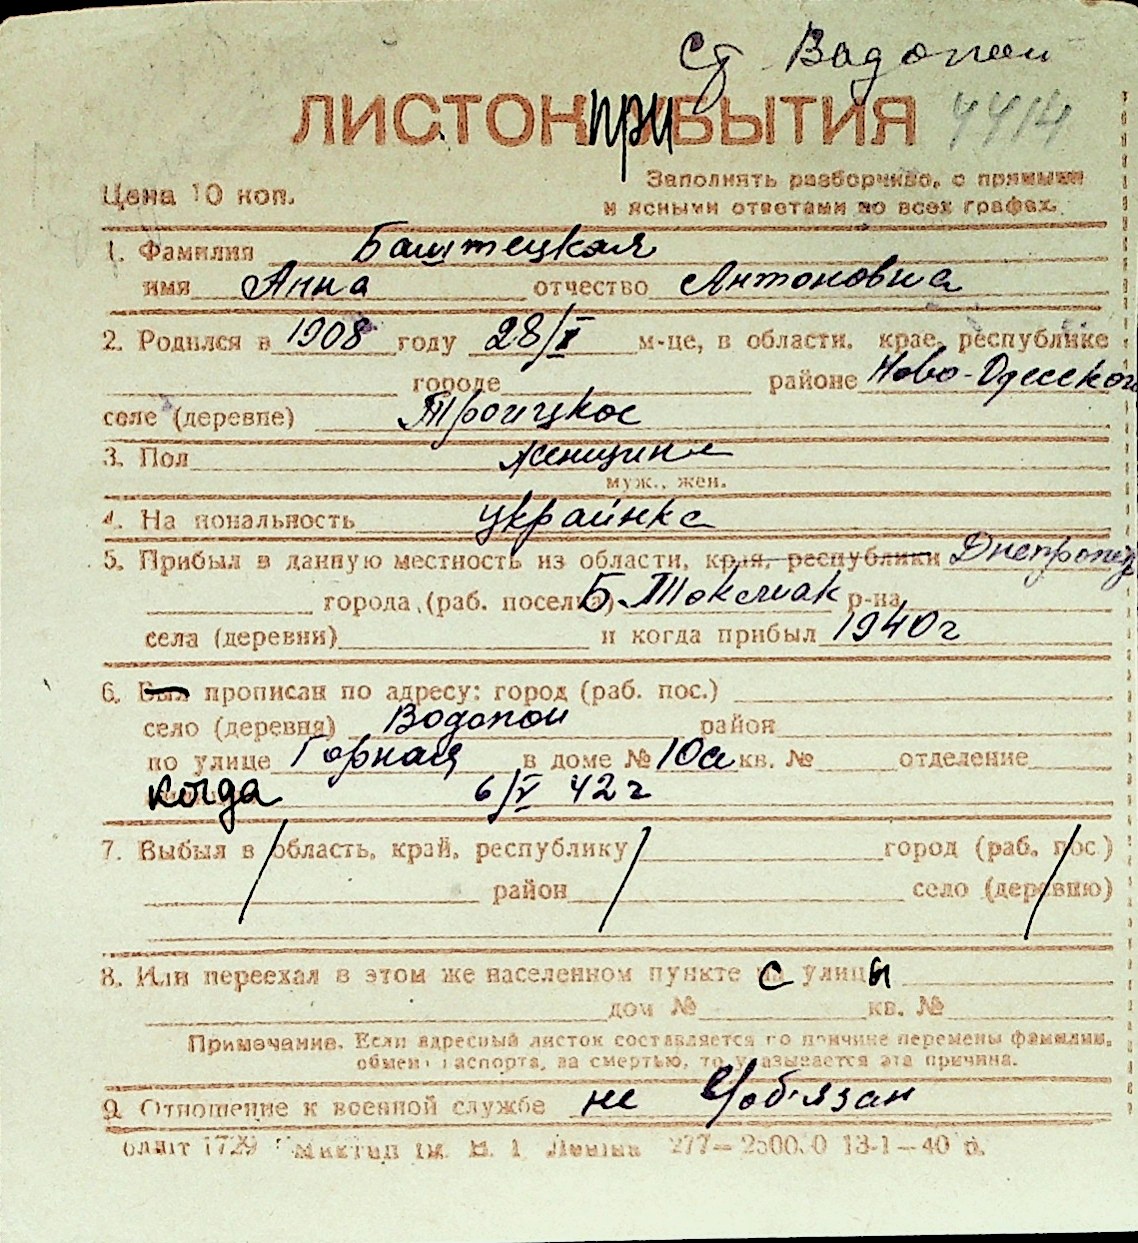 ст. Вадопой
ЛИСТОК ПРИБЫТИЯ 4414
Цена 10 коп.
Заполнять разборчиво, с прямыми
и ясными ответами во всех графах.
1. Фамилия Баштецкая
имя Анна отчество Антоновна
2. Родился в 1908 году 28/X м-це, в области, крае, республике
городе районе Ново-Одесском
селе (деревне) Троицкое
3. Пол женщина
муж., жен.
4. Национальность украинка
5. Прибыл в данную местность из области, края, республики Днепропет
города (раб. поселка) Б. Токмак р-на
села (деревни) и когда прибыл 1940 г
6. Был прописан по адресу: город (раб. пос.)
село (деревня) Водопой район
по улице Горная в доме № 10а кв. № отделение
когда 6/V 42 г
7. Выбыл в область, край, республику город (раб. пос.)
район село (деревню)
8. Или переехал в этом же населенном пункте с улицы
дом № кв. №
Примечание. Если адресный листок составляется по причине перемены фамилии,
обмена паспорта, за смертью, то указывается эта причина.
9. Отношение к военной службе не в/обязан
1729 ім. В. І. Леніна 277— 13-1—40 р.